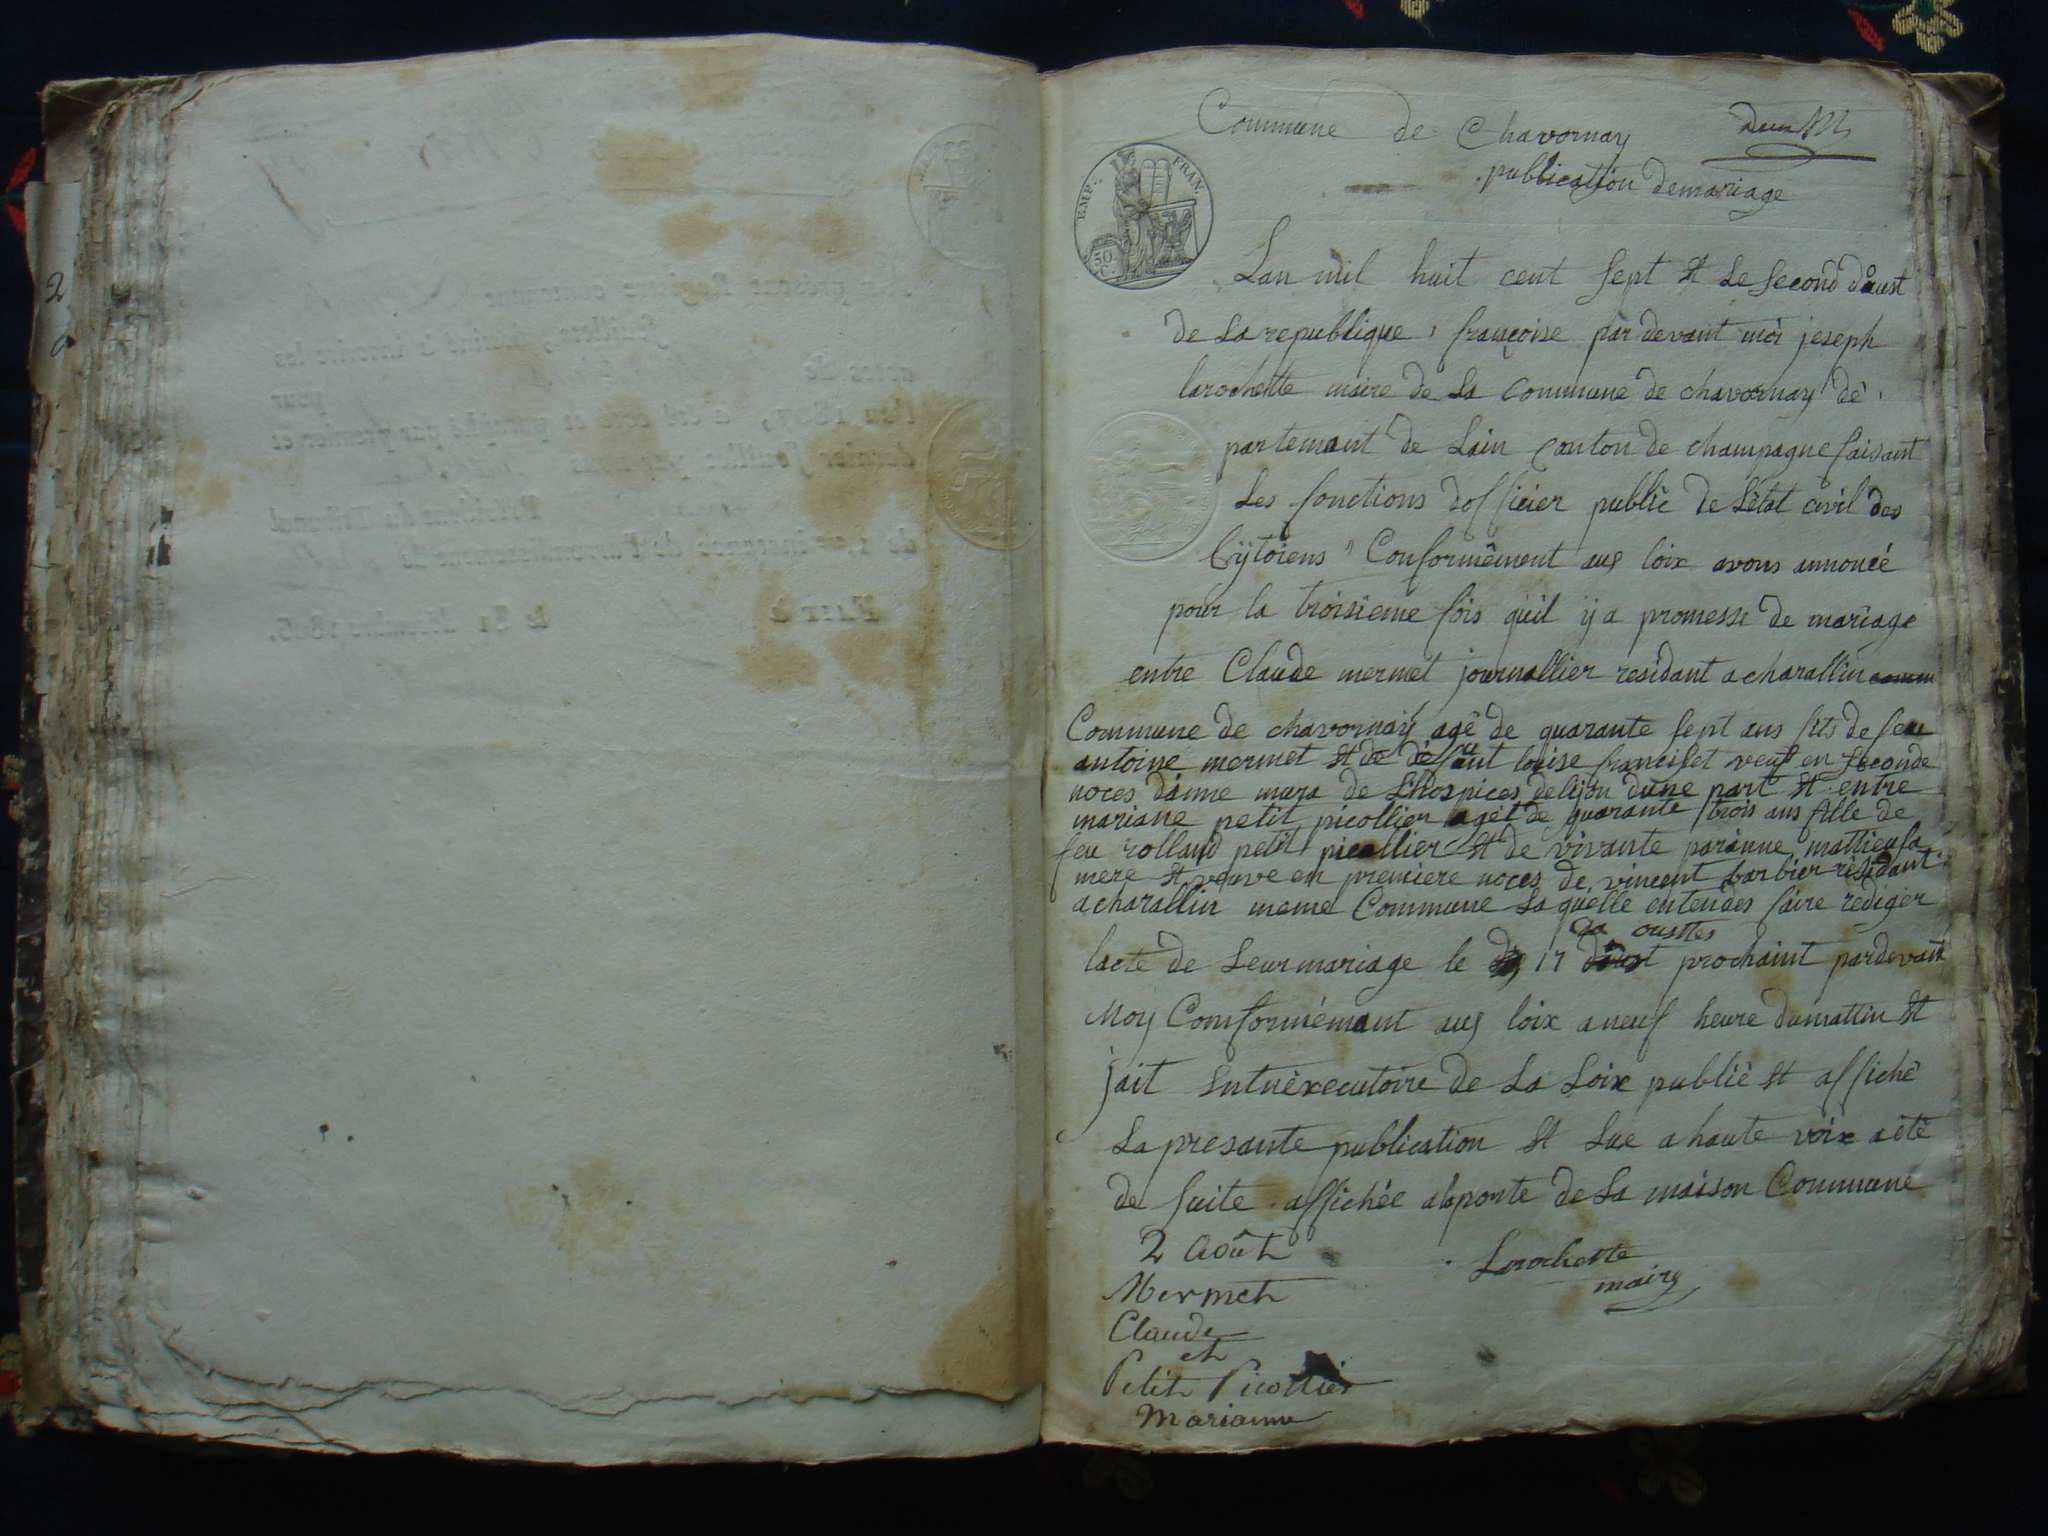 2
Commune de Chavornay
publication demariage
EMP. FRAN.
50 C.
Lan mil huit cent sept et Le second daust
de La republique francoise par devant moi joseph
larochette maire de La Commune de chavornay dé
partemant de Lain Canton de champagne faisant
Les fonctions dofficier public de Létat civil des
Cÿtoiens Conformêment aux loix avons annoncé
pour la troisieme fois quil ÿ a promesse de mariage
entre Claude mermet journallier residant a charallin
Commune de chavornay agé de quarante sept ans fils de feu
antoine mermet et de defunt louise veuf en seconde
noces danne mara de Lhospices delijon dune part et entre
mariane petit picollier agét de quarante trois ans fille de
feu rolland petit picollier et de vivante parànne mattieu sa
mere et veuve en premiere noces de vincent barbier résidant
a charallin meme Commune La quelle entendes faire rediger
lacte de Leur mariage le 17 prochaint pardevant
Moy Conformémant aux loix a neuf heure du mattin et
jait executoire de La Loix publié et affiché
La presante publication et Lue a haute voix a été
de suite affichée alaporte de La maison Commune
2 Août
Larochette
maire
Mermet
Claude
et
Petit Picollier
Marianne